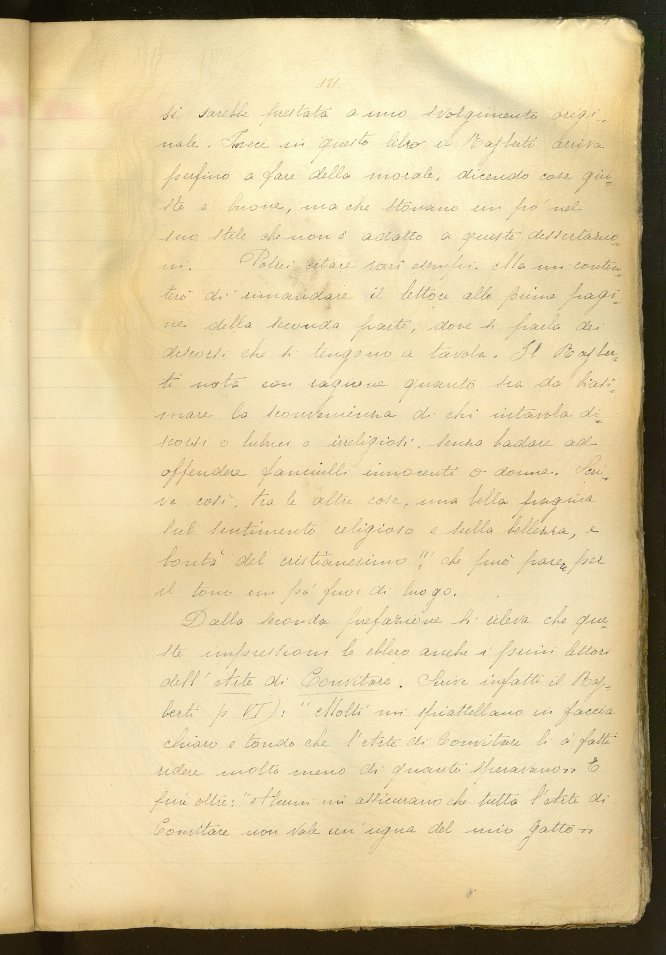 111.
si sarebbe prestata a uno svolgimento origi-
nale. Invece in questo libro il Rajberti arriva
perfino a fare della morale, dicendo cose giu-
ste e buone, ma che stonano un po' nel
suo stile che non è adatto a queste dissertazio-
ni. Potrei citare vari esempi. Ma mi conten-
terò di rimandare il lettore alle prime pagi-
ne della seconda parte, dove si parla dei
discorsi che si tengono a tavola. Il Rajber-
ti nota con ragione quanto sia da biasi-
mare la sconvenienza di chi intavola di-
scorsi o lubrici o irreligiosi, senza badare ad
offendere fanciulli innocenti o donne. Scri-
ve così, tra le altre cose, una bella pagina
sul sentimento religioso e sulla bellezza, e
bontà del cristianesimo che può parere, per
il tono un po' fuor di luogo.
Dalla seconda prefazione si rileva che que-
ste impressioni le ebbero anche i primi lettori
dell'Arte di Convitare. Scrive infatti il Raj-
berti p VI): "Molti mi spiattellano in faccia
chiaro e tondo che l'Arte di Convitare li à fatti
ridere molto meno di quanto speravano,, E
più oltre: "Alcuni mi assicurano che tutta l'Arte di
Convitare non vale un'ugna del mio Gatto,,